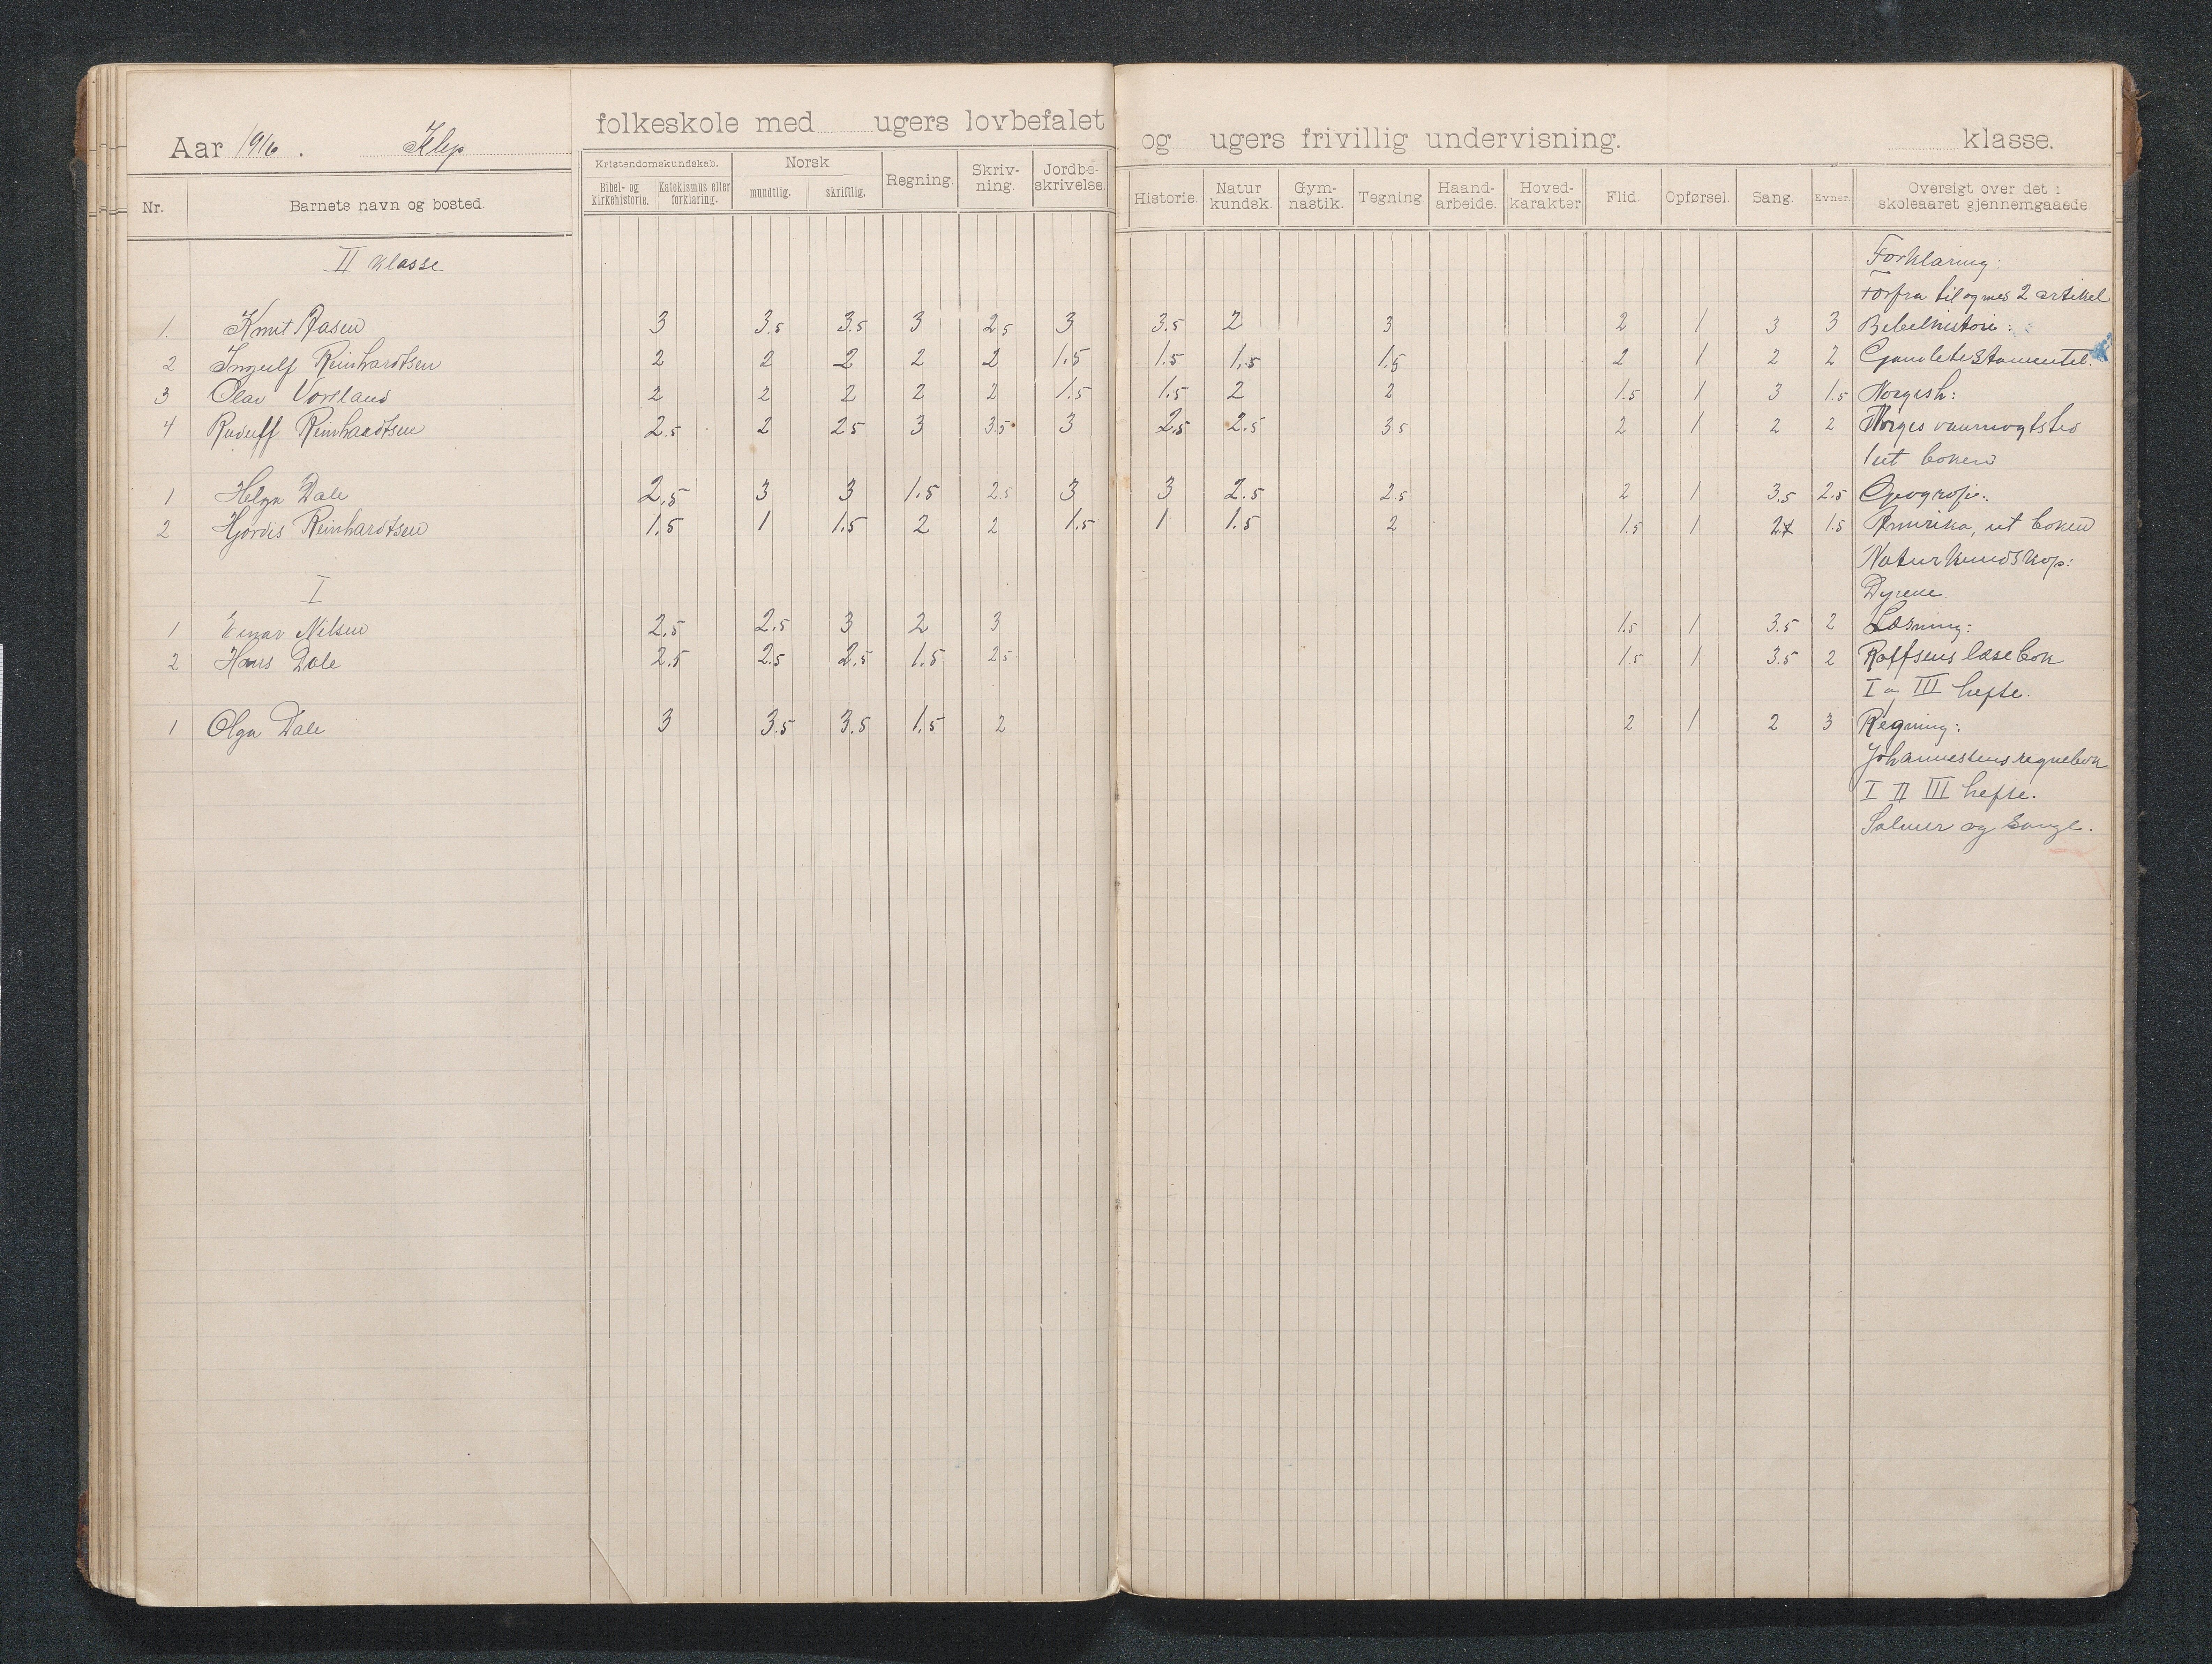 Aar 1916. Klep folkeskole med ugers lovbefalet og ugers frivillig undervisning. klasse.
Nr. Barnets navn og bosted. Kristendomskundskab. Bibel- og kirkehistorie. Katekismus eller forklaring. Norsk mundtlig. skriftlig. Regning. Skriv-ning. Jordbe-skrivelse. Historie. Natur kundsk. Gym-nastik. Tegning Haand-arbeide. Hoved-karakter Flid. Opførsel. Sang. Evner Oversigt over det i skoleaaret gjennemgaaede.
II klasse Forklaring:
Forfra til og med 2 artikel
1. Knut Aasen 3 3.5 3.5 3 2.5 3 3.5 2 3 2 1 3 3 Bibelhistorie:
2 Ingulf Reinhardtsen 2 2 2 2 2 1.5 1.5 1.5 1.5 2 1 2 2 Gamletestamentet.
3 Olav Vorsland 2 2 2 2 2 1.5 1.5 2 2 1.5 1 3 1.5 Norgesh:
4 Reinhardtsen 2.5 2 2.5 3 3.5 3 2.5 2.5 3.5 2 1 2 2 Norges
ut boken
1 Helga Dale 2.5 3 3 1.5 2.5 3 3 2.5 2.5 2 1 3.5 2.5 Geografie:
2 Hjordis Reinhardtsen 1.5 1 1.5 2 2 1.5 1 1.5 2 1.5 1 2 1.5 Amerika, ut boken
Naturkundskap:
I Dyrene.
1 Einar Nilsen 2.5 2.5 3 2 3 1.5 1 3.5 2 Læsning:
2 Hans Dale 2.5 2.5 2.5 1.5 2.5 1.5 1 3.5 2 Rolfsens læsebok
I og III hefte.
1 Olga Dale 3 3.5 3.5 1.5 2 2 1 2 3 Regning:
Johannessens regnebok
I II III hefte.
Salmer og sange.